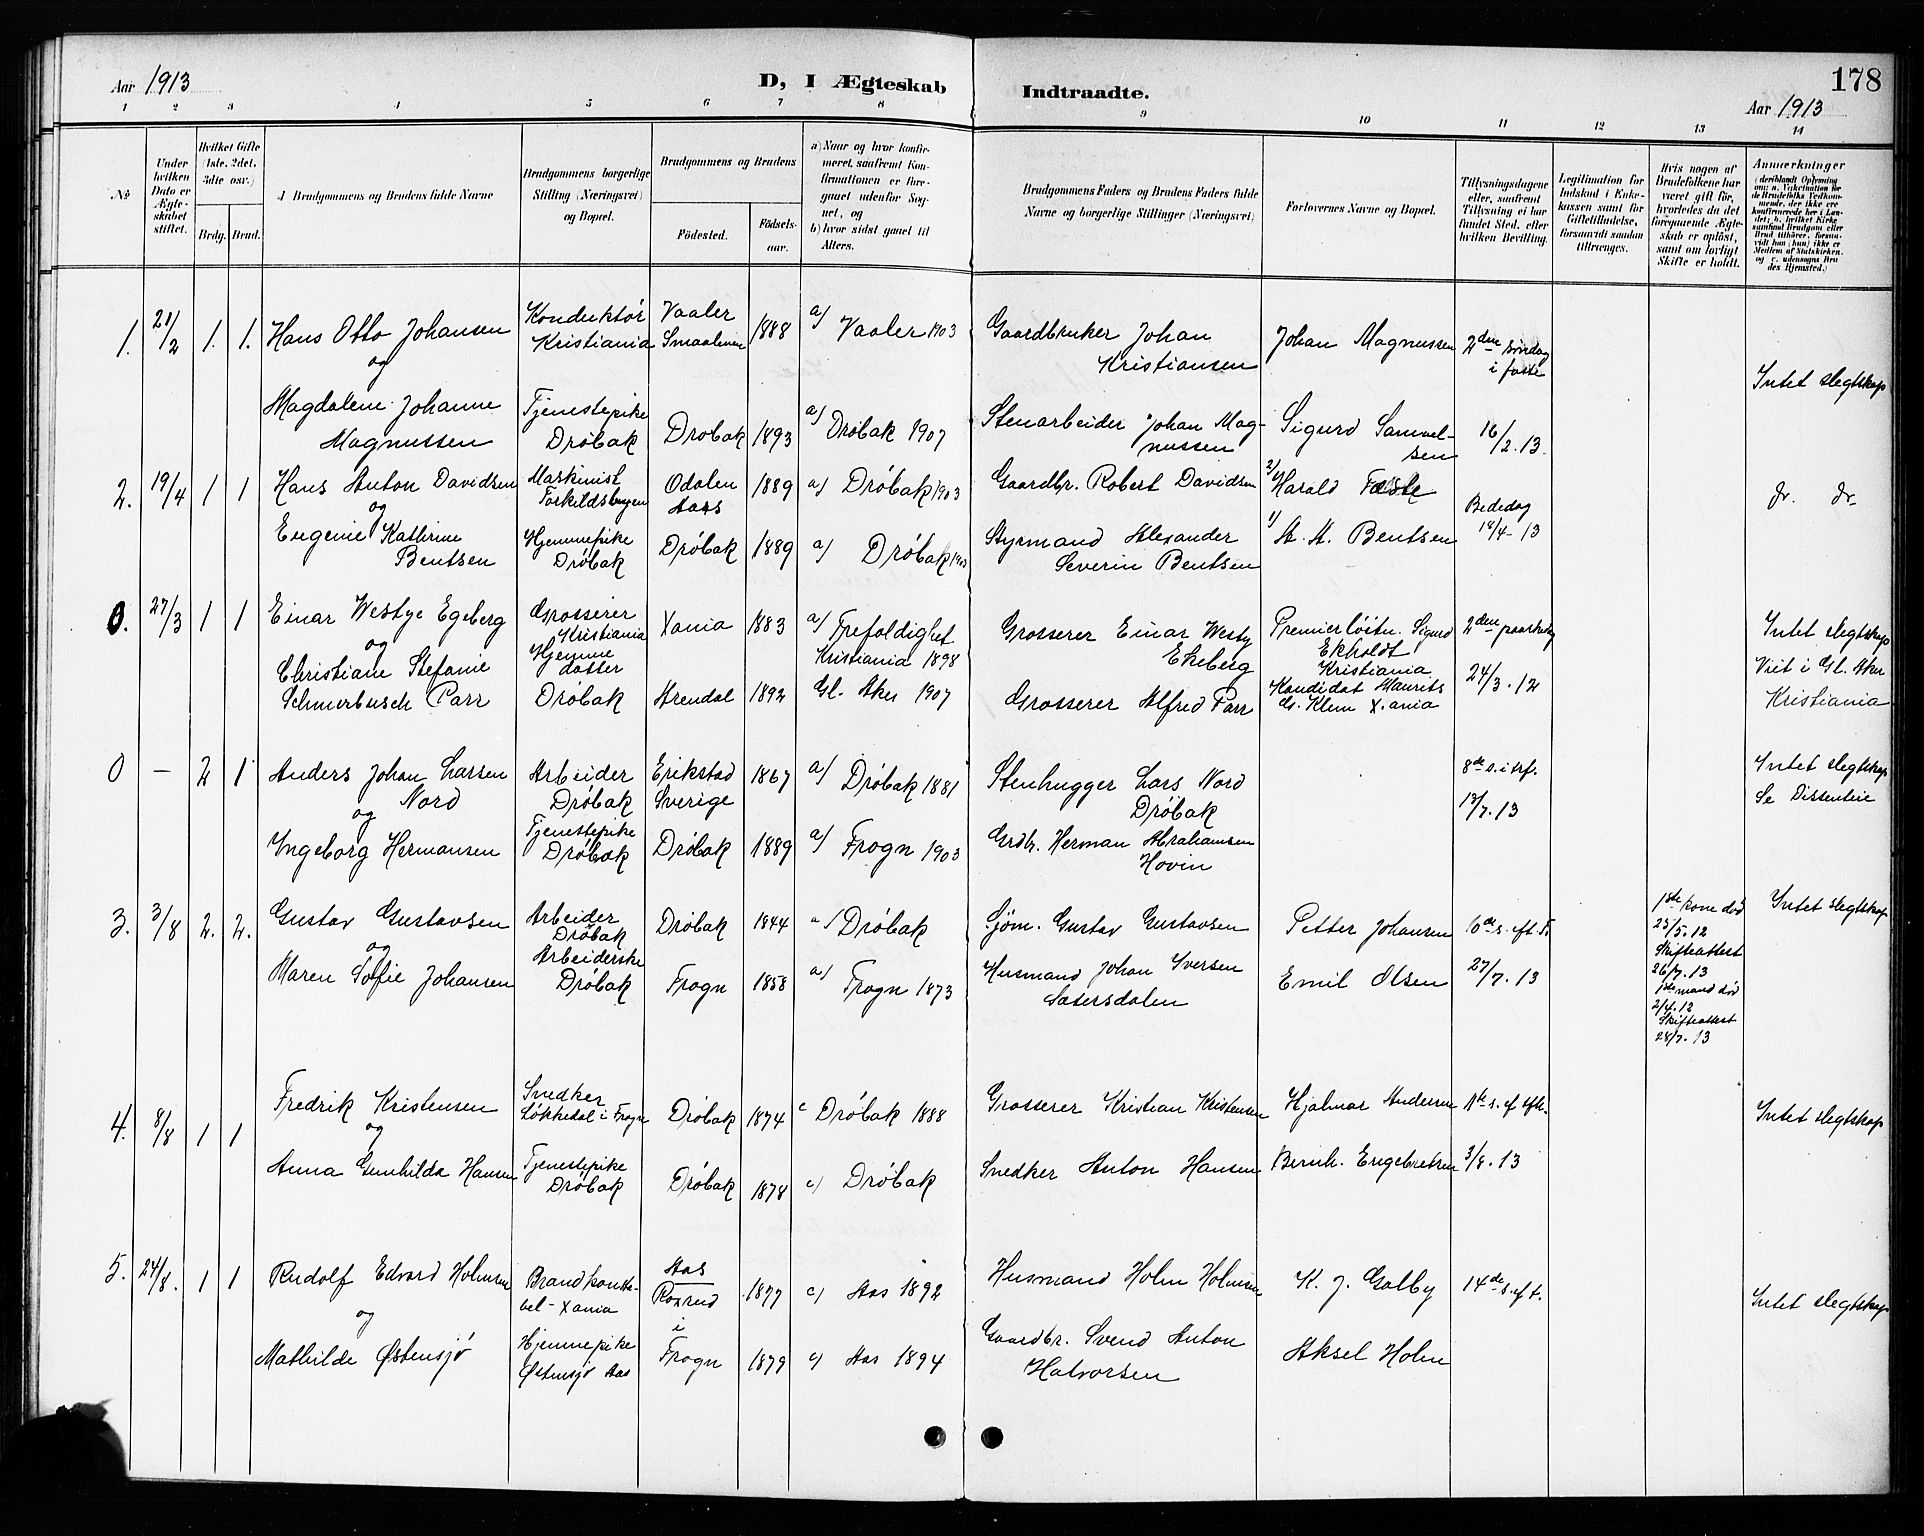 178
Aar 1913
D, I Ægteskab Indtraadte.
Aar 1913
1 2 3 4 5 6 7 8 9 10 11 12 13 14
No
Under hvilken Dato er Ægteskabet stiftet.
Hvilket Gifte (1ste, 2det, 3die osv.)
Brdg. Brud.
Brudgommens og Brudens fulde Navne
Brudgommens borgerlige Stilling (Næringsvei) og Bopæl.
Brudgommens og Brudens
Fødested.
Fødselsaar.
a) Naar og hvor konfirmeret, saafremt Konfirmationen er foregaaet udenfor Sognet, og
b) hvor sidst gaaet til Alters.
Brudgommens Faders og Brudens Faders fulde Navne og borgerlige Stillinger (Næringsvei)
Forlovernes Navne og Bopæl.
Tillysningsdagene eller, saafremt Tillysning ei har fundet Sted, efter hvilken Bevilling.
Legitimation for Indskud i Enkekassen samt for Giftetilladelse, forsaavidt saadan tiltrænges.
Hvis nogen af Brudefolkene har været gift før, hvorledes da det foregaaende Ægteskab er opløst, samt om lovligt Skifte er holdt.
Anmærkninger
1. 21/2 1. 1. Hans Otto Johansen Konduktör Kristiania Vaaler Smaalenene 1888 a) Vaaler 1903 Gaardbruker Johan Kristiansen Johan Magnussen 2den söndag i faste
og
Intet slegtskap
Magdalene Johanne Magnussen Tjenestepike Dröbak Dröbak 1893 a) Dröbak 1907 Stenarbeider Johan Magnussen Sigurd Samuelsen 16/2.13.
2. 19/4 1 1 Hans Anton Davidsen Maskinist Torkildsbugen Odalen Aas 1889 a) Dröbak 1903 Gaardbr. Robert Davidsen 2) Harald Fæste Bededag
og
do. do.
Eugenie Kathrine Bentsen Hjemmepike Dröbak Dröbak 1889 a) Dröbak 1903 Styrmand Alexander Severin Bentsen 1) A. A. Bentsen 18/4-13
0. 27/3 1 1 Einar Westye Egeberg Grosserer Kristiania Xania 1883 a) Trefoldighet Kristiania 1898 Grosserer Einar Westy Ekeberg Premierlöitn. Sigurd Ekholdt Kristiania 2den paaskedag
og
Christiane Stefanie Schmerbusch Parr Hjemmedatter Dröbak Arendal 1892 Gl. Aker 1907 Grosserer Alfred Parr Kandidat Maurits Gr. Klem X.ania 24/3.12
Intet slegtskap
Viet i Gl. Aker
Kristiania
0 — 2 1 Anders Johan Larsen Nord Arbeider Dröbak Erikstad Sverige 1867 a) Dröbak 1881 Stenhugger Lars Nord Dröbak 8de s. i trf.
og
13/7.13
Intet slegtskap
Se Dissentere
Yngeborg Hermansen Tjenestepike Dröbak Dröbak 1889 a) Frogn 1903 Grdbr. Herman Abrahamsen Hovin
3. 3/8 2. 2. Gustav Gustavsen Arbeider Dröbak Dröbak 1844 a) Dröbak Sjöm. Gustav Gustavsen Petter Johansen 10de s. eft. T.
og
Maren Sofie Johansen Arbeiderske Dröbak Frogn 1858 a) Frogn 1873 Husmand Johan Iversen Sætersdalen Emil Olsen 27/7.13
1ste kone död
25/5.12
Skifteattest
26/7.13
1ste mand död
2/4.12
Skifteattest
28/7.13
Intet slegtskap
4. 8/8 1 1 Fredrik Kristensen Snedker Lökkedal i Frogn Dröbak 1874 c Dröbak 1888 Grosserer Kristian Kristensen Hjalmar Andersen 11te s. ef tref.
og
Intet slegtskap
Anna Gunhilda Hansen Tjenestepike Dröbak Dröbak 1878 c) Dröbak Snedker Anton Hansen Bernh. Engebretsen 3/8.13
5. 24/8. 1 1 Rudolf Edvard Holmsen Brandkonstabel - Xania Aas 1877 c) Aas 1892 Husmand Holm Holmsen K. J. Galby 14de s. ef t.
og
Intet slegtskap
Mathilde Østensjö Hjemmepike Østensjö Aas Roxrud i Frogn 1879 c) Aas 1894 Gaardbr. Svend Anton Halvorsen Aksel Holm